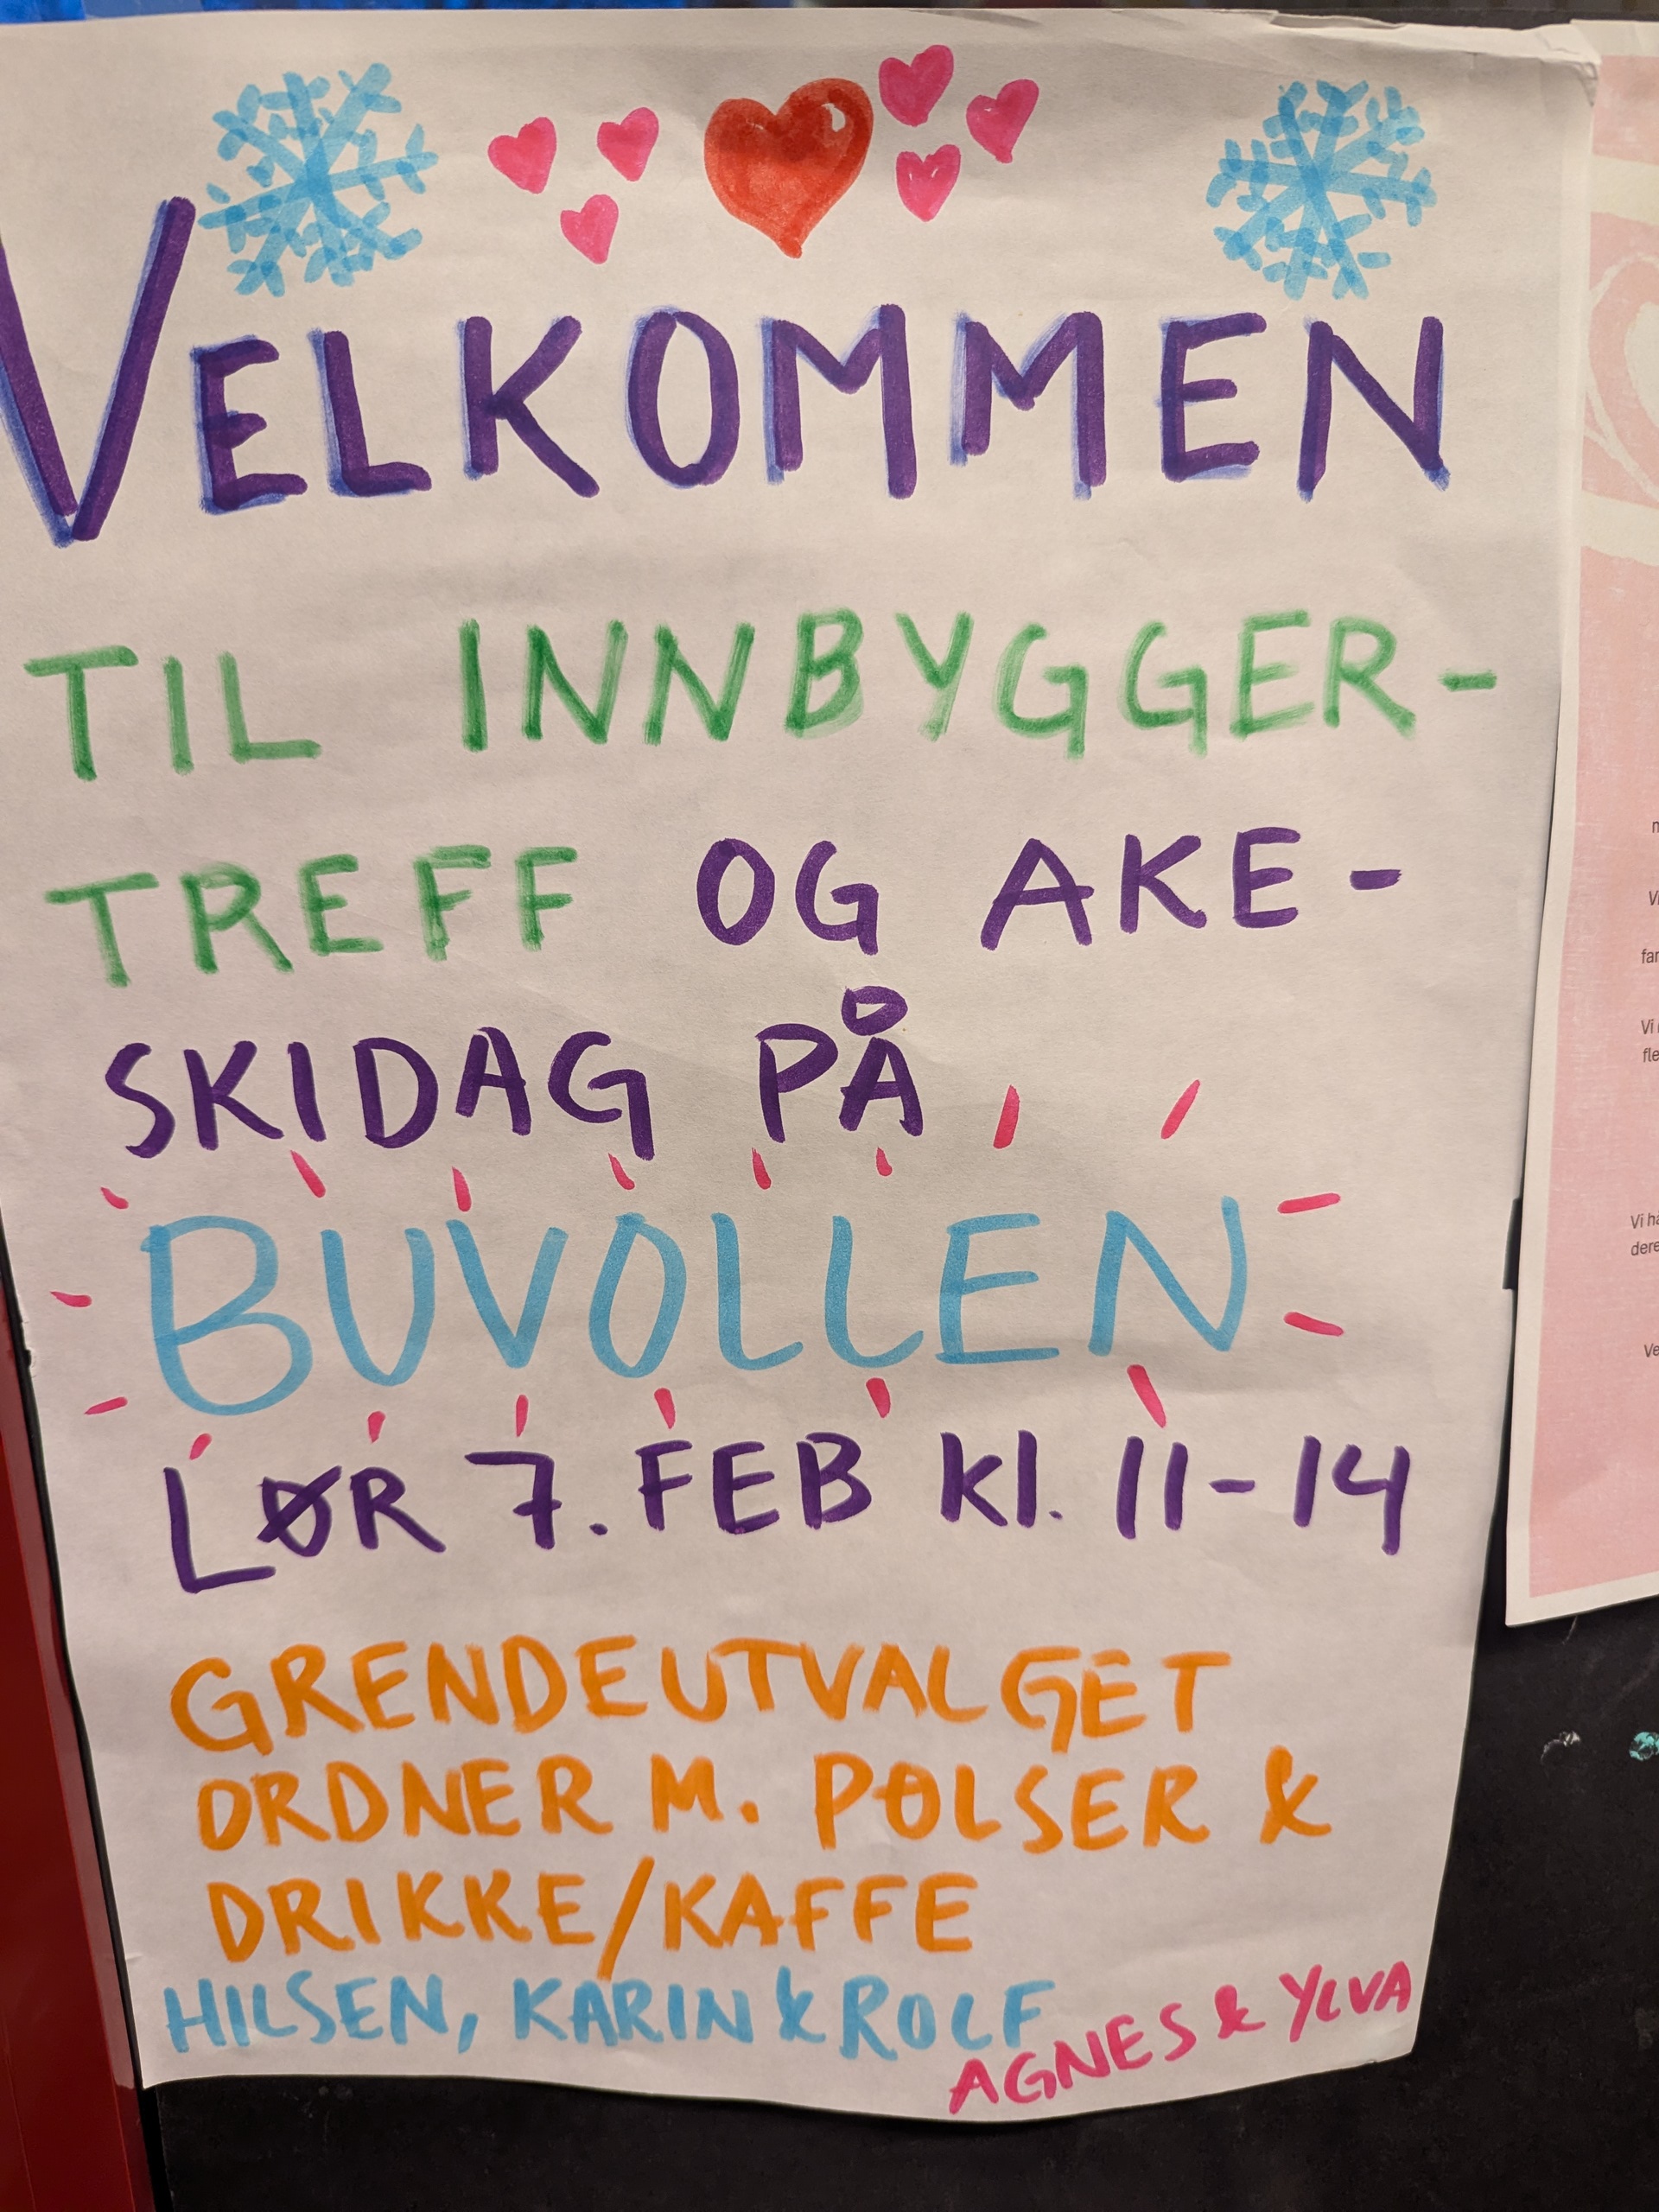 VELKOMMEN
TIL INNBYGGER-
TREFF OG AKE-
SKIDAG PÅ
BUVOLLEN
LØR 7. FEB Kl. 11-14
GRENDEUTVALGET
ORDNER M. PØLSER &
DRIKKE/KAFFE
HILSEN, KARIN & ROLF
AGNES & YLVA
Vi
Vi ha
dere
Ve